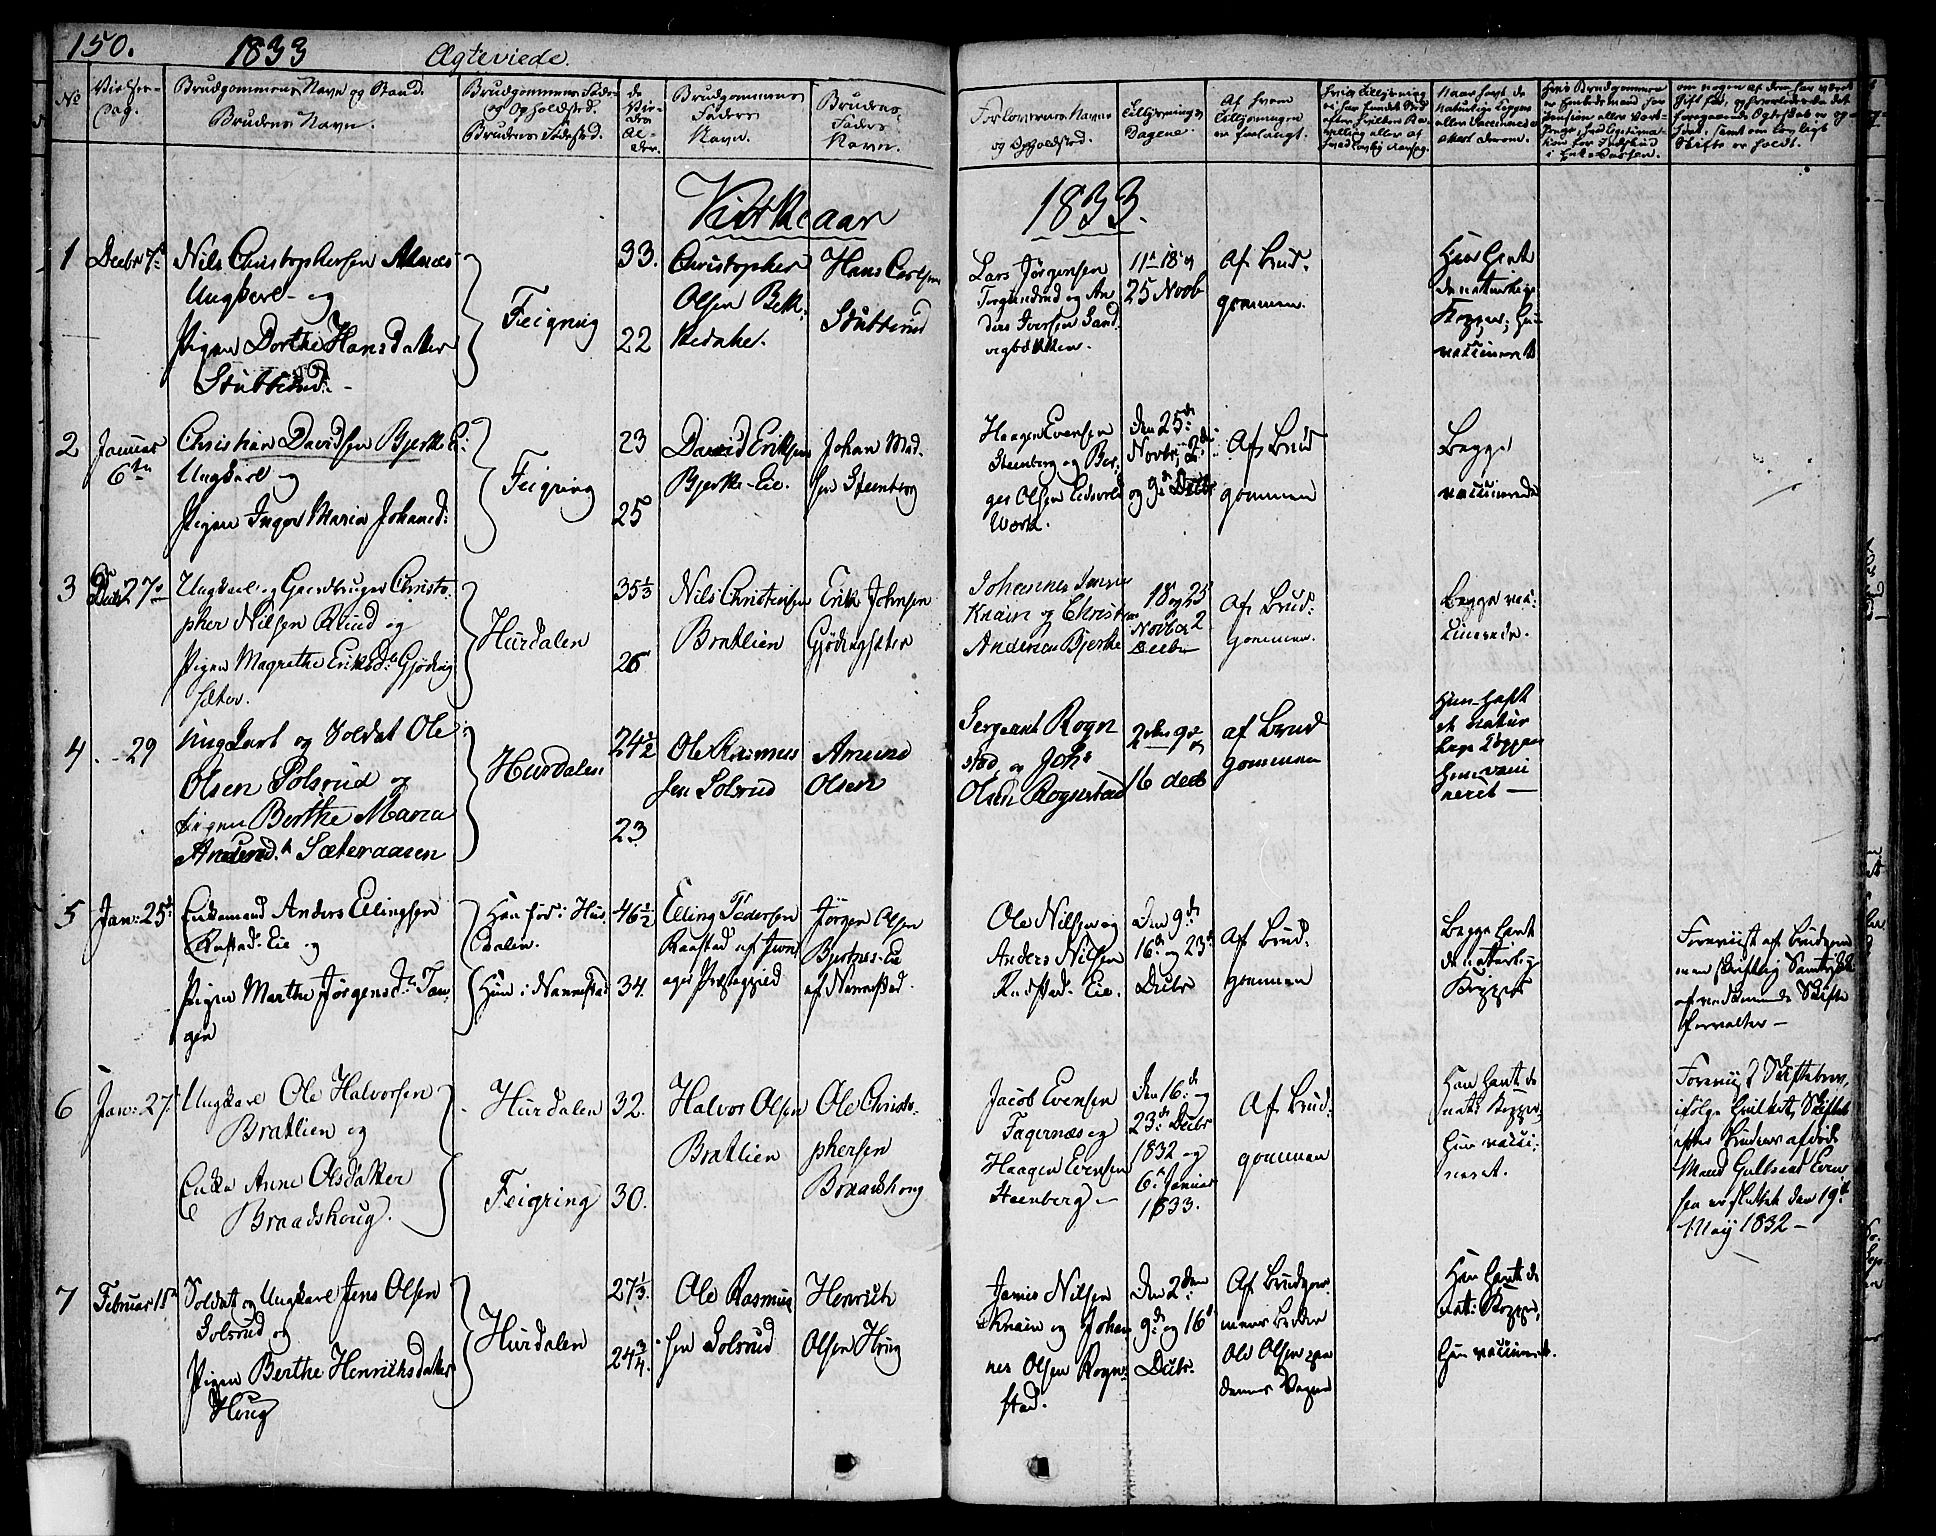 150. 1833 Ægteviede.
No
Vielses-Dag.
Brudgommens Navn og Stand.
Brudens Navn.
Brudgommens Føde- og Opholdsted.
Brudens Fødested.
de Viedes Alder.
Brudgommens Faders Navn.
Brudens Faders Navn.
Forlovernes Navne og Opholdsted.
Tillysnings Dagene.
Af hvem Tillysningen er forlangt.
Kirkeaar 1833.
1 Decbr 7de
Nils Christophersen Alnæs
Ungkarl og
Pigen Dorthe Hansdatter
Stubberud
Feigring
33.
22
Christopher
Olsen Bek-
kedahl.
Hans Carlsen
Stubberud
Lars Jørgensen
Torgunrud og An
ders Iversen Sand
vigbækken.
11te 18de og
25 Novb
Af Brud-
gommen.
Han havt
de naturlige
Kopper, hun
vaccineret
2 Januar
6te
Christian Davidsen Bjerke E:
Ungkarl og
Pigen Inger Maria Johansd:
Feigring
23
25
David Eriksen
Bjerke-Eie.
Johan Mad-
sen Steenberg
Haagen Evensen
Steenberg og Ber-
ger Olsen Eidsvold
Værk.
Den 25de
Novbr, 2den
og 9de Decbr
Af Brud
gommen
Begge
vaccinerede
3 Decb 27de
Ungkarl og Gaardbruger Christo-
pher Nilsen Ruud og
Pigen Magrethe Eriksd: Gjøding
sæter.
Hurdalen
35 1/3
26
Nils Christensen
Bratlien
Erik Johnsen
Gjødingsæter
Johannes Jensen
Knain og Christen
Andersen Bjerke
18 og 25
Novb og 2
Decbr
Af Brud-
gommen.
Begge vac-
cinerede.
4 - 29
Ungkarl og Soldat Ole
Olsen Solsrud og
pigen Berthe Maria
Amundsd. Sæteraasen
Hurdalen
24 1/2
23
Ole Rasmus
sen Solsrud
Amund
Olsen
Sergeant Rogn
stad og Johs
Olsen Rognstad
2den 9de og
16 decb
af Brud
gommen
Han haft
de natur
lige Kopper
hun vacci
neret
5 Jan: 25de
Enkemand Anders Ellingsen
Rustad-Eie og
Pigen Marthe Jørgensdr Tan-
gen
Han før i Hur
dalen.
Hun i Nannestad
46 1/2
34.
Elling Pedersen
Raastad af Jevn
ager Præstegjeld
Jørgen Olsen
Bjertnes-Eie
af Nannestad.
Ole Nilsen og
Anders Nilsen
Rudstad-Eie.
Den 9de
16de og 23de
Decbr
Af Brud-
gommen
Begge havt
de naturlige
Kopper
Foreviist af Brudgom
men skriftlig Samtykke
af vedkommende Skifte
forvalter
6 Jan: 27
Ungkarl Ole Halvorsen
Bratlien og
Enke Anne Olsdatter
Braadshoug.
Hurdalen
Feigring
32.
30.
Halvor Olsen
Bratlien
Ole Christo-
phersen
Braadshoug
Jacob Evensen
Fagernæs og
Haagen Evensen
Steenberg
Den 16de og
23de Decbr
1832 og
6te Januar
1833.
Af Brud-
gommen
Han havt de
nat: Kopper,
hun vacci-
neret.
Foreviist Skiftebrev,
ifølge hvilket Skiftet
efter Brudens afdøde
Mand Gulbrand Even
sen er sluttet den 19de
May 1832
7 Februar 15de
Soldat og Ungkarl Jens Olsen
Solsrud og
Pigen Berthe Henrichsdatter
Houg
Hurdalen
27 1/3.
24 3/4.
Ole Rasmus
sen Solsrud
Henrich
Olsen Houg
Jens Nilsen
Knain og Johan
nes Olsen Rogn-
stad.
Den 2den
9de og 16de
Decbr.
Af Brudgom
mens broder
Ole Olsen paa
dennes Vegne
Han havt de
nat: Kopper,
hun vaccineret.